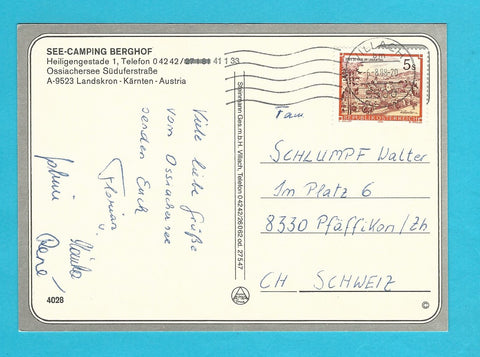 SEE-CAMPING BERGHOF
Heiligengestade 1, Telefon 04242/27181 41133
Ossiachersee Süduferstraße
A-9523 Landskron - Kärnten - Austria
Viele liebe Grüße
vom Ossiachersee
senden Euch
Florian
u.
René
4028
Gesm.b.H. Villach, Telefon 04242/28082 od. 27547
VILLACH
5 S
REPUBLIK ÖSTERREICH
Fam.
SCHLUMPF Walter
Im Platz 6
8330 Pfäffikon/Zh
CH SCHWEIZ
©